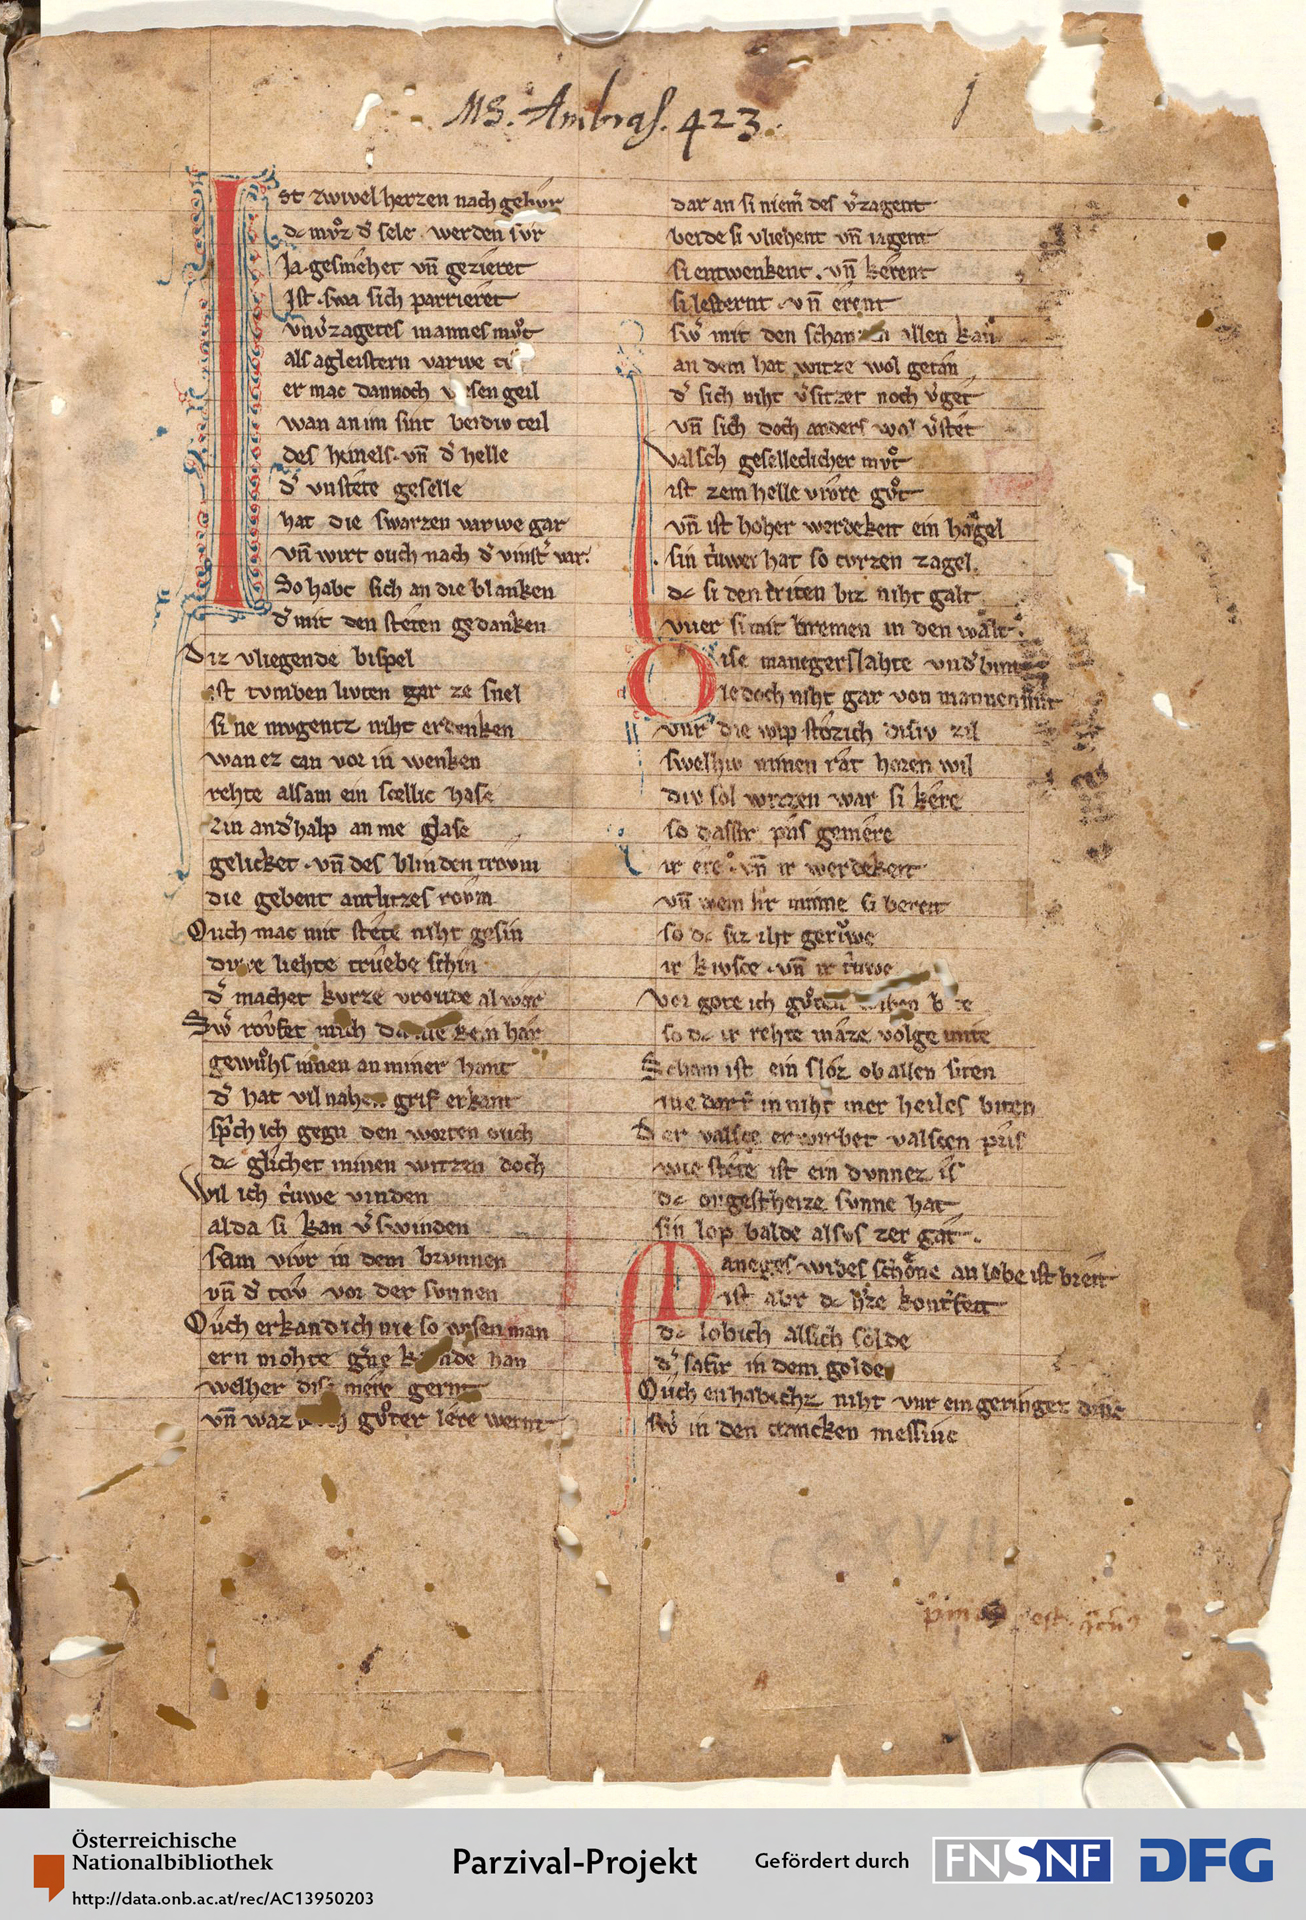 MS. Ambras. 423.
1
Ist zwivel herzen nach gebvr
dc mvͦz dˀ sele werden svr
Ja gesmehet vn̄ gezieret
Jst. swa sich parrieret
vnvˀzagetes mannes mvͦt
als agleistern varwe
er mac dannoch wesen geil
wan an im sint beidiv teil
des himels. vn̄ dˀ helle
dˀ vnstete geselle
hat die swarzen varwe gar
vn̄ wirt ouch nach dˀ vinstˀ var.
So habt sich an die blanken
dˀ mit den steten gedanken
Diz vliegende bispel
ist tvmben livten gar ze snel
si ne mvgentz niht erdenken
wan ez can vor in wenken
rehte alsam ein scellic hase
zin andˀhalp an me glase
gelicket. vn̄ des blinden trovm
die gebent antlvtzes rovm
Ouch mac mit stete niht gesin
dirre liehte truebe schin
dˀ machet kvrze vroude al war
Swˀ rovfet mich da nie kein har
gewuͦhs innen an miner hant
dˀ hat vil nahen grif erkant
sprˀch ich gegn den worten ouch
dc glichet minen witzen doch
Wil ich trˀuwe vinden
alda si kan vˀswinden
sam vivr in dem brvnnen
vn̄ dˀ tov von der svnnen
Ouch erkand ich nie so wisen man
ern mohte gˀne kvnde han
welher dise mere gernt
vn̄ waz guͦter lere wernt
dar an si niemˀ des vˀzagent
beide si vliehent vn̄ iagent
si entwenkent. vn̄ kerent
si lesternt. vn̄ erent
swˀ mit den schanzen allen kan
an dem hat witze wol getan
dˀ sich niht vˀsitzet noch vˀget
vn̄ sich doch anders wol vˀstet
valsch geselleclicher mvͦt
ist zem helle vivre guͦt
vn̄ ist hoher werdekeit ein hagel
sin trˀuwe hat so cvrzen zagel.
dc si den triten biz niht galt
vuer si mit bremen in den walt.
Dise maneger slahte vndˀbint
iedoch niht gar von mannen sint
vur die wip stoz ich disiv zil
swelhiv minen rat horen wil
div sol wizzen war si kere
ir ere. vn̄ ir werdekeit
vn̄ wem sir minne si bereit
so dc siz iht geruͦwe
ir kivsce. vn̄ ir trˀuwe
vor gote ich guͦten wiben bite
so dc ir rehte maze volge mite
Scham ist ein sloz ob allen siten
ine darf in niht mer heiles biten
Der valsce erwirbet valscen pris
wie stete ist ein dvnnez is
dc ovgestheize svnne hat
sin lop balde alsvs zer gat.
Maneges wibes schoͤne an lobe ist breit
ist abr dc hˀze kontˀfeit
dc lob ich als ich solde
dc safir in dem golde
Ouch en habichz niht vur ein geringez dinc
swˀ in den crancken messinc
CCXVII
Österreichische
Nationalbibliothek
http://data.onb.ac.at/rec/AC13950203
Parzival-Projekt
Gefördert durch
FNSNF
DFG